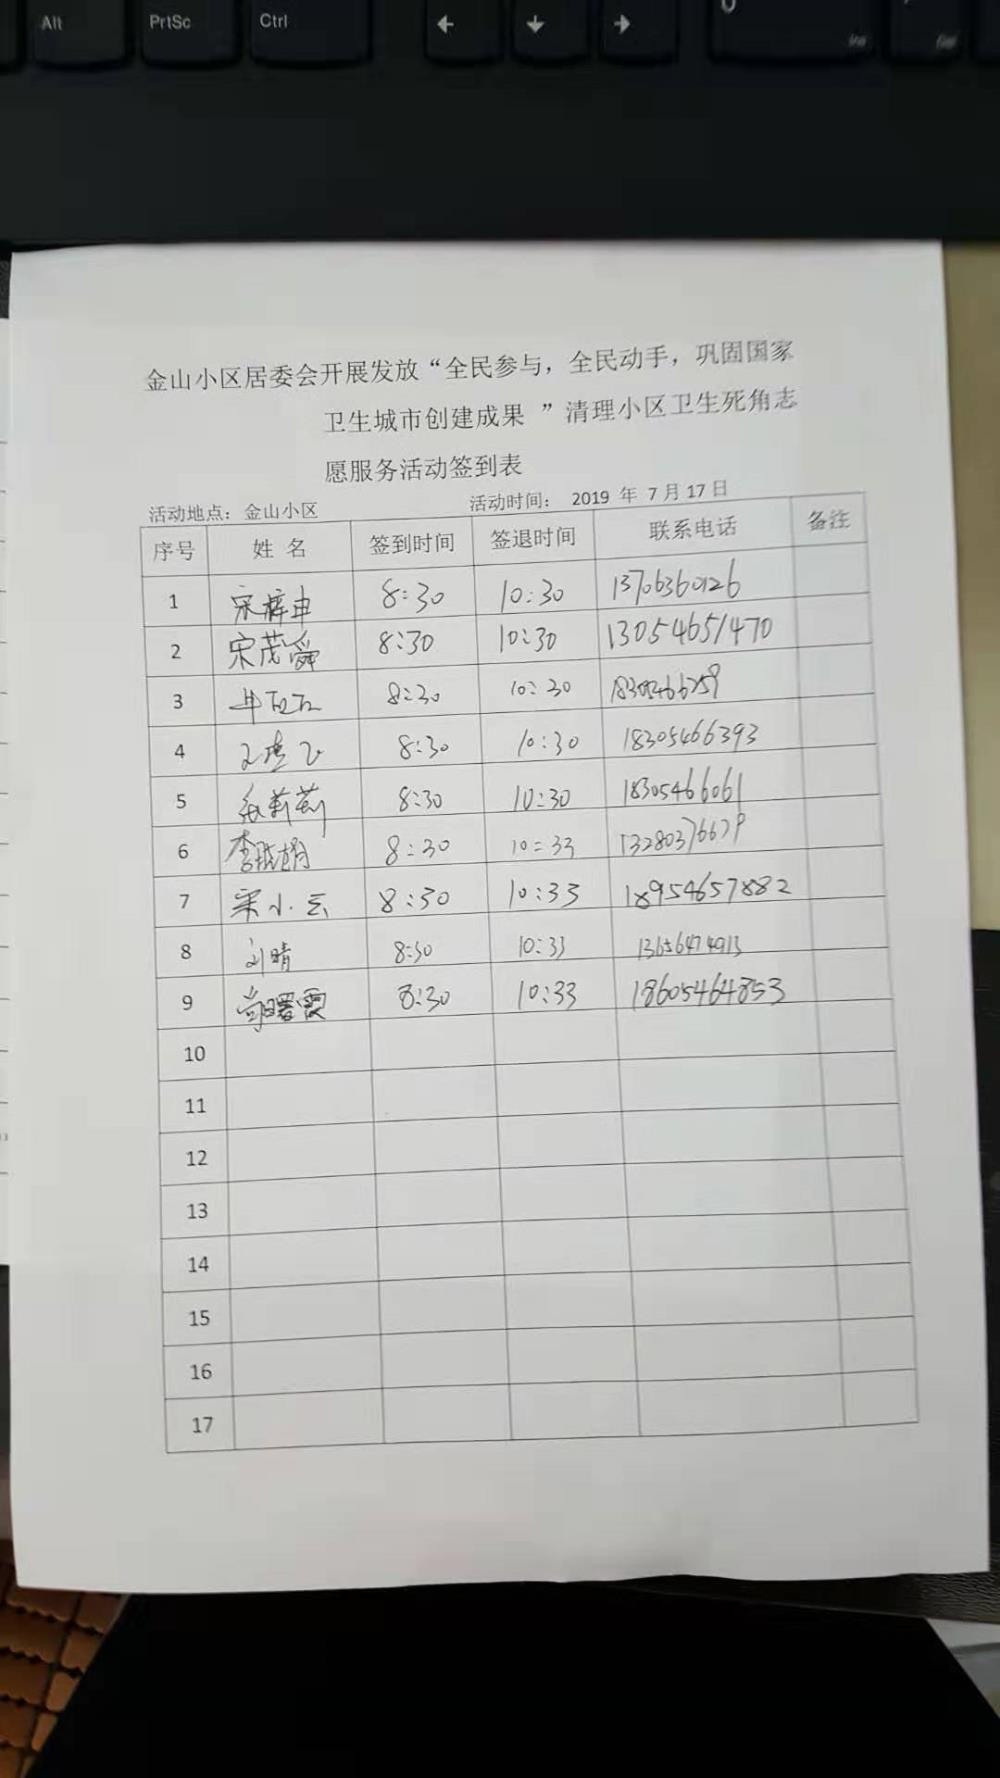 Alt PrtSc Ctrl
金山小区居委会开展发放“全民参与，全民动手，巩固国家
卫生城市创建成果 ”清理小区卫生死角志
愿服务活动签到表
活动地点：金山小区 活动时间： 2019 年 7 月 17 日
序号 姓 名 签到时间 签退时间 联系电话 备注
1 宋梓申 8:30 10:30 13706360126
2 宋茂舜 8:30 10:30 13054651470
3 8:30 10:30
4 8:30 10:30 18305466393
5 张莉莉 8:30 10:30 18305466061
6 8:30 10:33 13280376679
7 宋小云 8:30 10:33 18954657882
8 刘晴 8:30 10:33
9 尚曙霞 8:30 10:33 18605464853
10
11
12
13
14
15
16
17